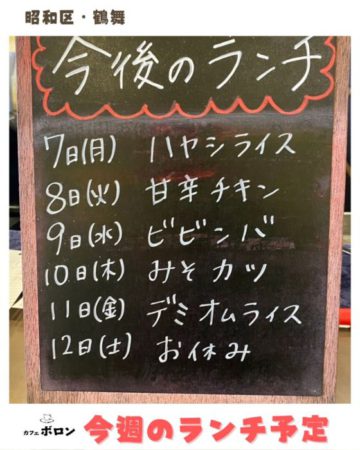 昭和区・鶴舞
今後のランチ
7日(月) ハヤシライス
8日(火) 甘辛チキン
9日(水) ビビンバ
10日(木) みそカツ
11日(金) デミオムライス
12日(土) お休み
カフェ ボロン 今週のランチ予定